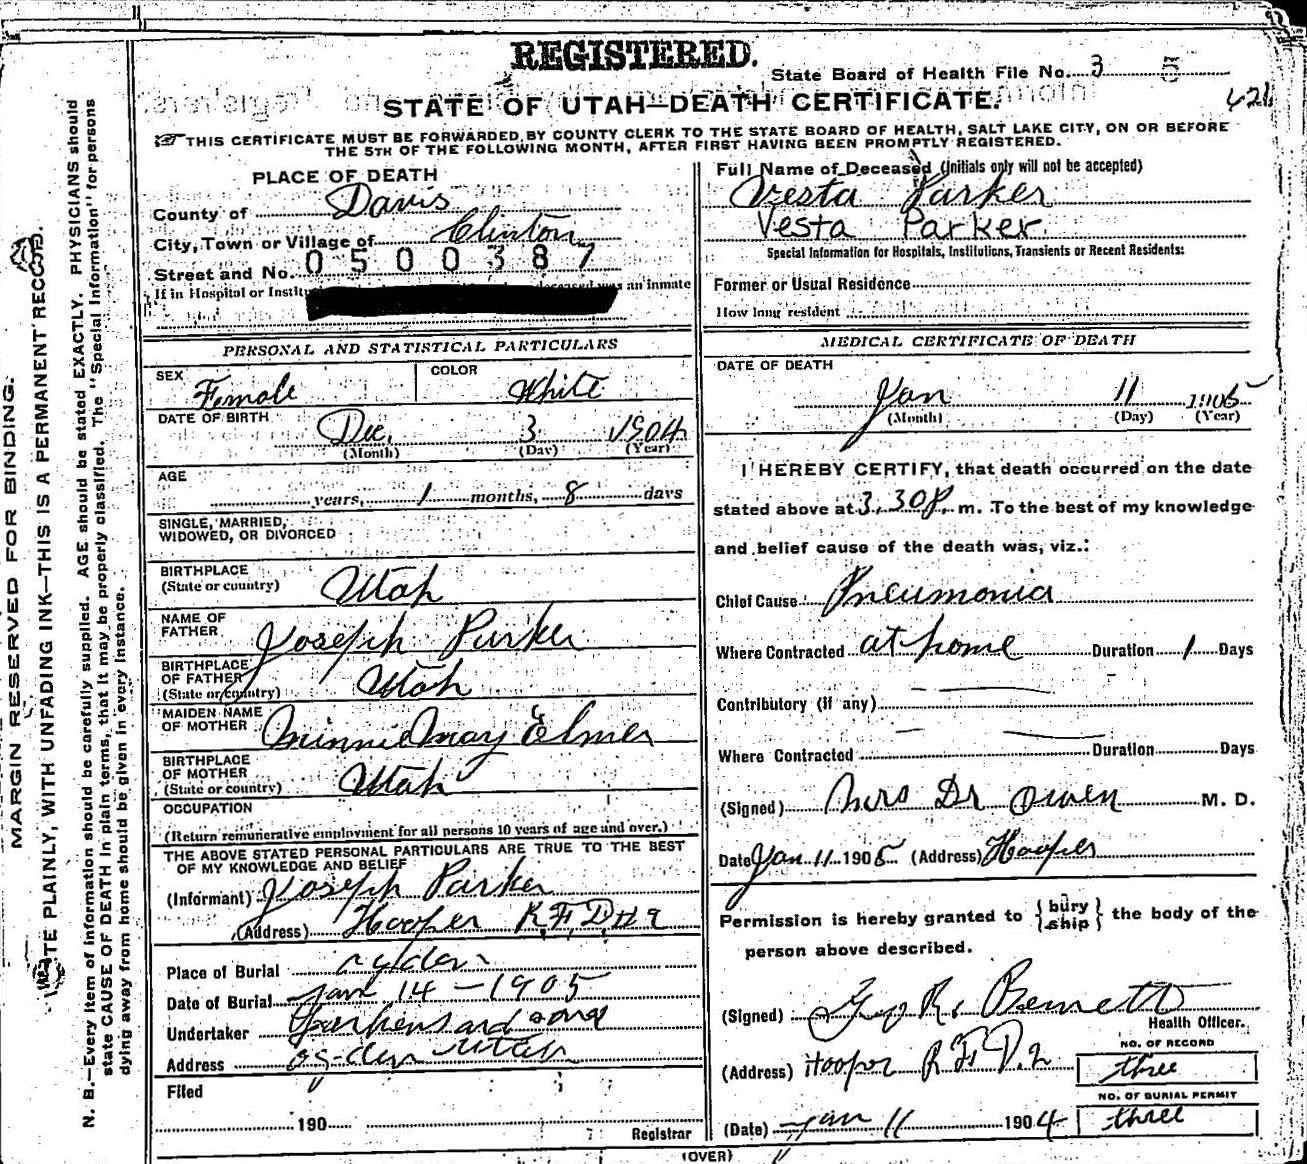 REGISTERED.
State Board of Health File No. 3 5
621
STATE OF UTAH—DEATH CERTIFICATE.
THIS CERTIFICATE MUST BE FORWARDED BY COUNTY CLERK TO THE STATE BOARD OF HEALTH, SALT LAKE CITY, ON OR BEFORE
THE 5TH OF THE FOLLOWING MONTH, AFTER FIRST HAVING BEEN PROMPTLY REGISTERED.
MARGIN RESERVED FOR BINDING.
PLAINLY, WITH UNFADING INK—THIS IS A PERMANENT RECORD.
N. B.—Every item of information should be carefully supplied. AGE should be stated EXACTLY. PHYSICIANS should
state CAUSE OF DEATH in plain terms, that it may be properly classified. The "Special Information" for persons
dying away from home should be given in every instance.
PLACE OF DEATH
County of Davis
City, Town or Village of Clinton
Street and No. 0500387
If in Hospital or Instit deceased was an inmate
PERSONAL AND STATISTICAL PARTICULARS
SEX Female COLOR White
DATE OF BIRTH Dec. 3 1904
(Month) (Day) (Year)
AGE
years, 1 months, 8 days
SINGLE, MARRIED,
WIDOWED, OR DIVORCED
BIRTHPLACE
(State or country) Utah
NAME OF
FATHER Joseph Parker
BIRTHPLACE
OF FATHER
(State or country) Utah
MAIDEN NAME
OF MOTHER Minnie May Elmer
BIRTHPLACE
OF MOTHER
(State or country) Utah
OCCUPATION
(Return remunerative employment for all persons 10 years of age and over.)
THE ABOVE STATED PERSONAL PARTICULARS ARE TRUE TO THE BEST
OF MY KNOWLEDGE AND BELIEF
(Informant) Joseph Parker
(Address) Hooper R.F.D.
Place of Burial Ogden
Date of Burial Jan 14 - 1905
Undertaker and sons
Address Ogden Utah
Filed
190
Registrar
Full Name of Deceased (Initials only will not be accepted)
Vesta Parker
Vesta Parker.
Special Information for Hospitals, Institutions, Transients or Recent Residents:
Former or Usual Residence
How long resident
MEDICAL CERTIFICATE OF DEATH
DATE OF DEATH
Jan 11 1905
(Month) (Day) (Year)
I HEREBY CERTIFY, that death occurred on the date
stated above at 3.30 P. m. To the best of my knowledge
and belief cause of the death was, viz.:
Chief Cause: Pneumonia
Where Contracted at home Duration 1 Days
Contributory (if any)
Where Contracted Duration Days
(Signed) Mrs Dr Owen M. D.
Date Jan 11 1905 (Address) Hooper
Permission is hereby granted to {bury ship} the body of the
person above described.
(Signed) Geo R. Bennett
Health Officer.
(Address) Hooper R F D. 2
NO. OF RECORD
three
NO. OF BURIAL PERMIT
three
(Date) Jan 11 1904
(OVER)